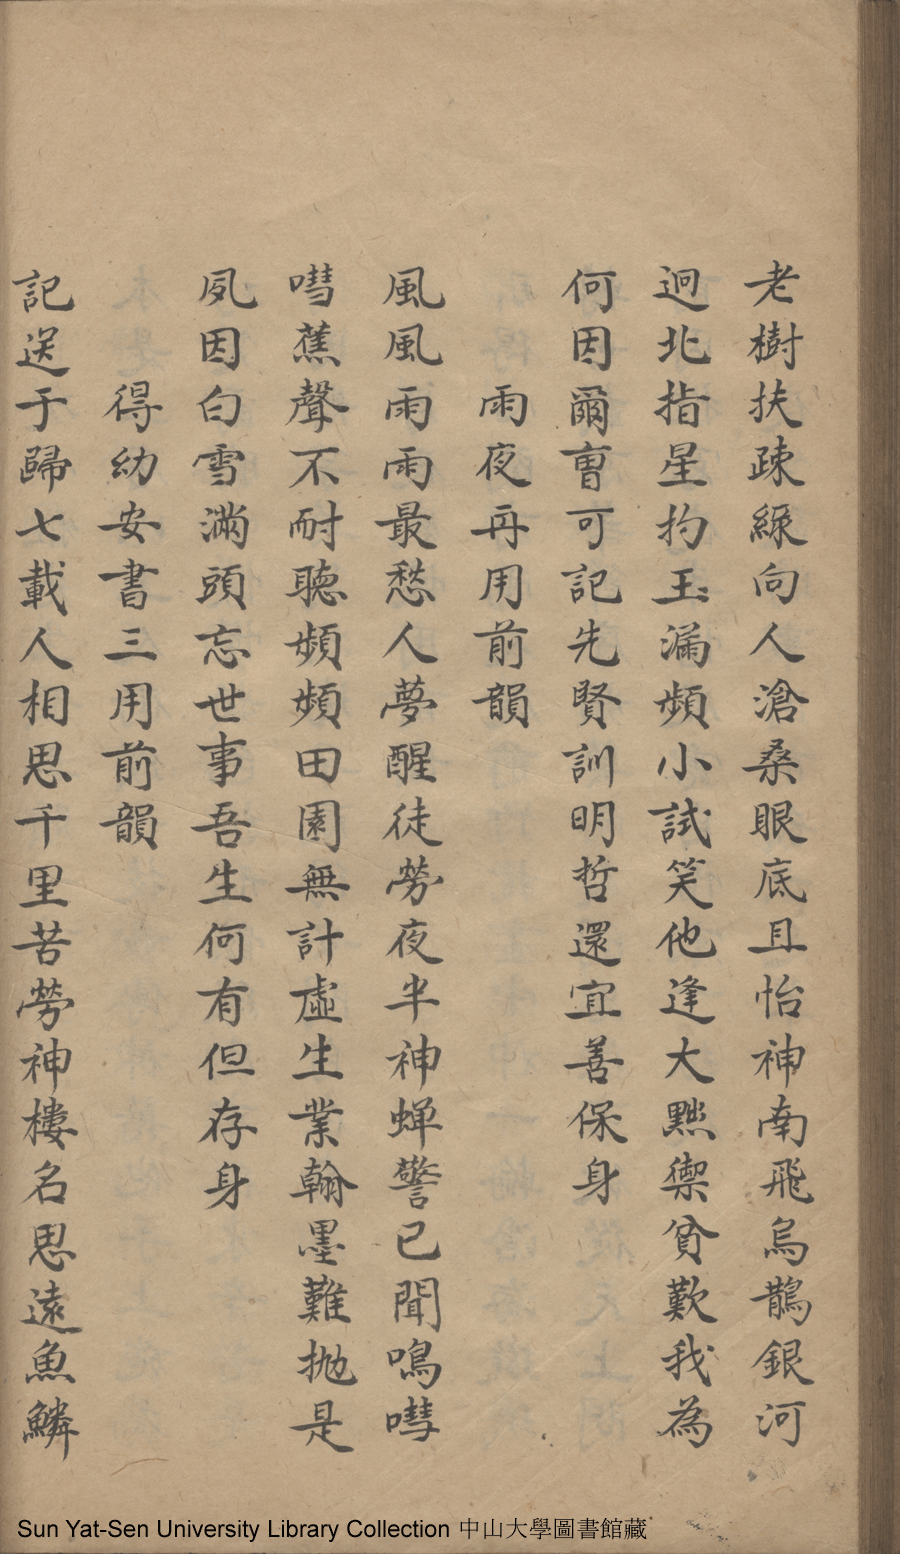 老樹扶疎綠向人滄桑眼底且怡神南飛烏鵲銀河
迥北指星杓玉漏頻小試笑他逢大黠禦貧歎我為
何因爾曹可記先賢訓明哲還宜善保身
雨夜再用前韻
風風雨雨最愁人夢醒徒勞夜半神蟬警已聞鳴嘒
嘒蕉聲不耐聽頻頻田園無計虛生業翰墨難拋是
夙因白雪滿頭忘世事吾生何有但存身
得幼安書三用前韻
記送于歸七載人相思千里苦勞神樓名思遠魚鱗
Sun Yat-Sen University Library Collection 中山大學圖書館藏